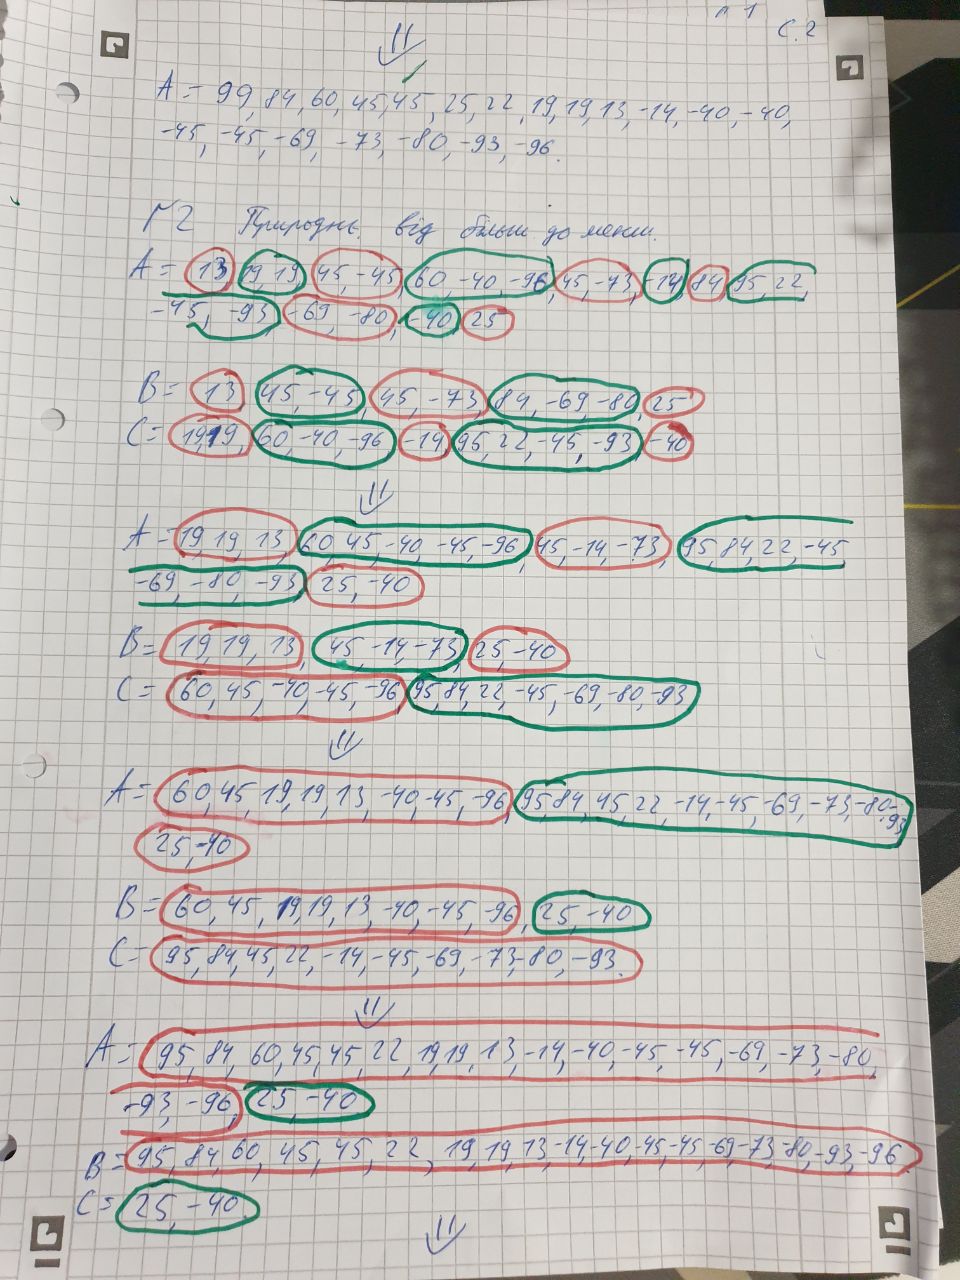 С. 2
A = 99, 84, 60, 45, 45, 25, 22, 19, 19, 13, -14, -40, -40,
-45, -45, -69, -73, -80, -93, -96.
№2 Природне. від більш до менш.
A = 13, 19, 19, 45, -45, 60, -40, -96, 45, -73, -14, 84, 95, 22,
-45, -93, -69, -80, -40, 25
B = 13, 45, -45, 45, -73, 84, -69, -80, 25
C = 19, 19, 60, -40, -96, -14, 95, 22, -45, -93, -40
A = 19, 19, 13, 60, 45, -40, -45, -96, 45, -14, -73, 95, 84, 22, -45
-69, -80, -93, 25, -40
B = 19, 19, 13, 45, -14, -73, 25, -40
C = 60, 45, -40, -45, -96, 95, 84, 22, -45, -69, -80, -93
A = 60, 45, 19, 19, 13, -40, -45, -96, 95, 84, 45, 22, -14, -45, -69, -73, -80, -93
25, -40
B = 60, 45, 19, 19, 13, -40, -45, -96, 25, -40
C = 95, 84, 45, 22, -14, -45, -69, -73, -80, -93.
A = 95, 84, 60, 45, 45, 22, 19, 19, 13, -14, -40, -45, -45, -69, -73, -80,
-93, -96, 25, -40
B = 95, 84, 60, 45, 45, 22, 19, 19, 13, -14, -40, -45, -45, -69, -73, -80, -93, -96
C = 25, -40